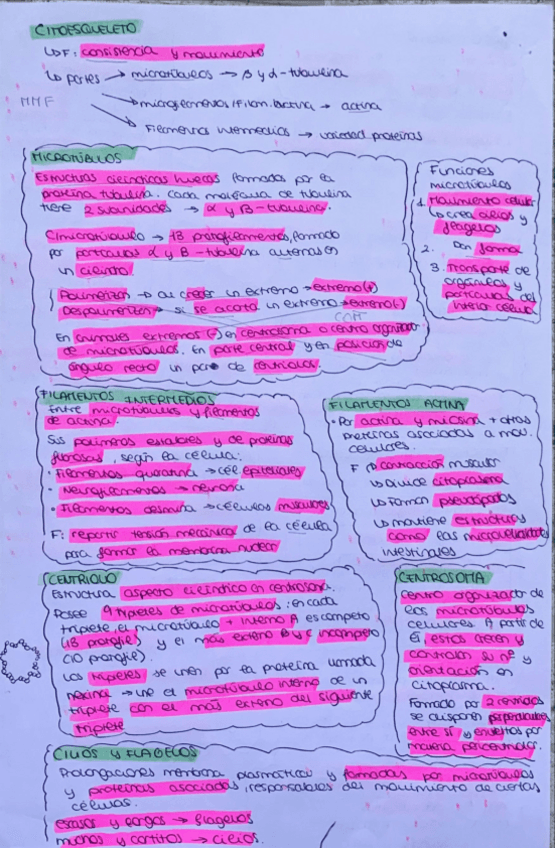 CITOESQUELETO
↳ F: consistencia y movimiento
↳ partes → microtúbulos → β y α-tubulina
MMF
→ microfilamentos/filam. actina → actina
→ Filamentos intermedios → variedad proteínas
MICROTÚBULOS
Estructuras cilíndricas huecas formadas por la
proteína tubulina. Cada molécula de tubulina
tiene 2 subunidades → α y β-tubulina.
C/microtúbulo → 13 protofilamentos, formado
por partículas α y β-tubulina alternas en
un cilindro
Polimerizan → al crecer un extremo → extremo (+)
Despolimerizan → si se acorta un extremo → extremo (-)
COM
En animales extremos (-) en centrosoma o centro organizador
de microtúbulos. En parte central y en posición de
ángulo recto un par de centriolos.
Funciones
microtúbulos
1. Movimiento celular
↳ crea cilios y
flagelos
2. Dan forma
3. Transporte de
orgánulos y
partículas del
interior celular
FILAMENTOS INTERMEDIOS
Entre microtúbulos y filamentos
de actina.
Sus polímeros estables y de proteínas
fibrosas, según la célula:
• Filamentos queratina → cél epiteliales
• Neurofilamentos → neurona
• Filamentos desmina → células musculares
F: repartir tensión mecánica de la célula
para formar la membrana nuclear
FILAMENTOS ACTINA
• Por actina y miosina + otras
proteínas asociadas a mov.
celulares.
F → contracción muscular
↳ Divide citoplasma
↳ Forman pseudópodos
↳ mantiene estructuras
como las microvellosidades
intestinales
CENTRIOLO
Estructura aspecto cilíndrico en centrosoma.
Posee 9 tripletes de microtúbulos: en cada
triplete, el microtúbulo + interno A es completo
(13 protofil) y el más externo B y C incompleto
(10 protofil).
Los tripletes se unen por la proteína llamada
nexina → une el microtúbulo interno de un
triplete con el más externo del siguiente
triplete
CENTROSOMA
Centro organizador de
los microtúbulos
celulares. A partir de
él, estos crecen y
controlan el nº y
orientación en
citoplasma.
Formado por 2 centriolos
se disponen perpendiculares
entre sí y envueltos por
material pericentriolar.
CILIOS Y FLAGELOS
Prolongaciones membrana plasmática y formadas por microtúbulos
y proteínas asociadas, responsables del movimiento de ciertas
células.
escasos y largos → flagelos
muchos y cortitos → cilios.